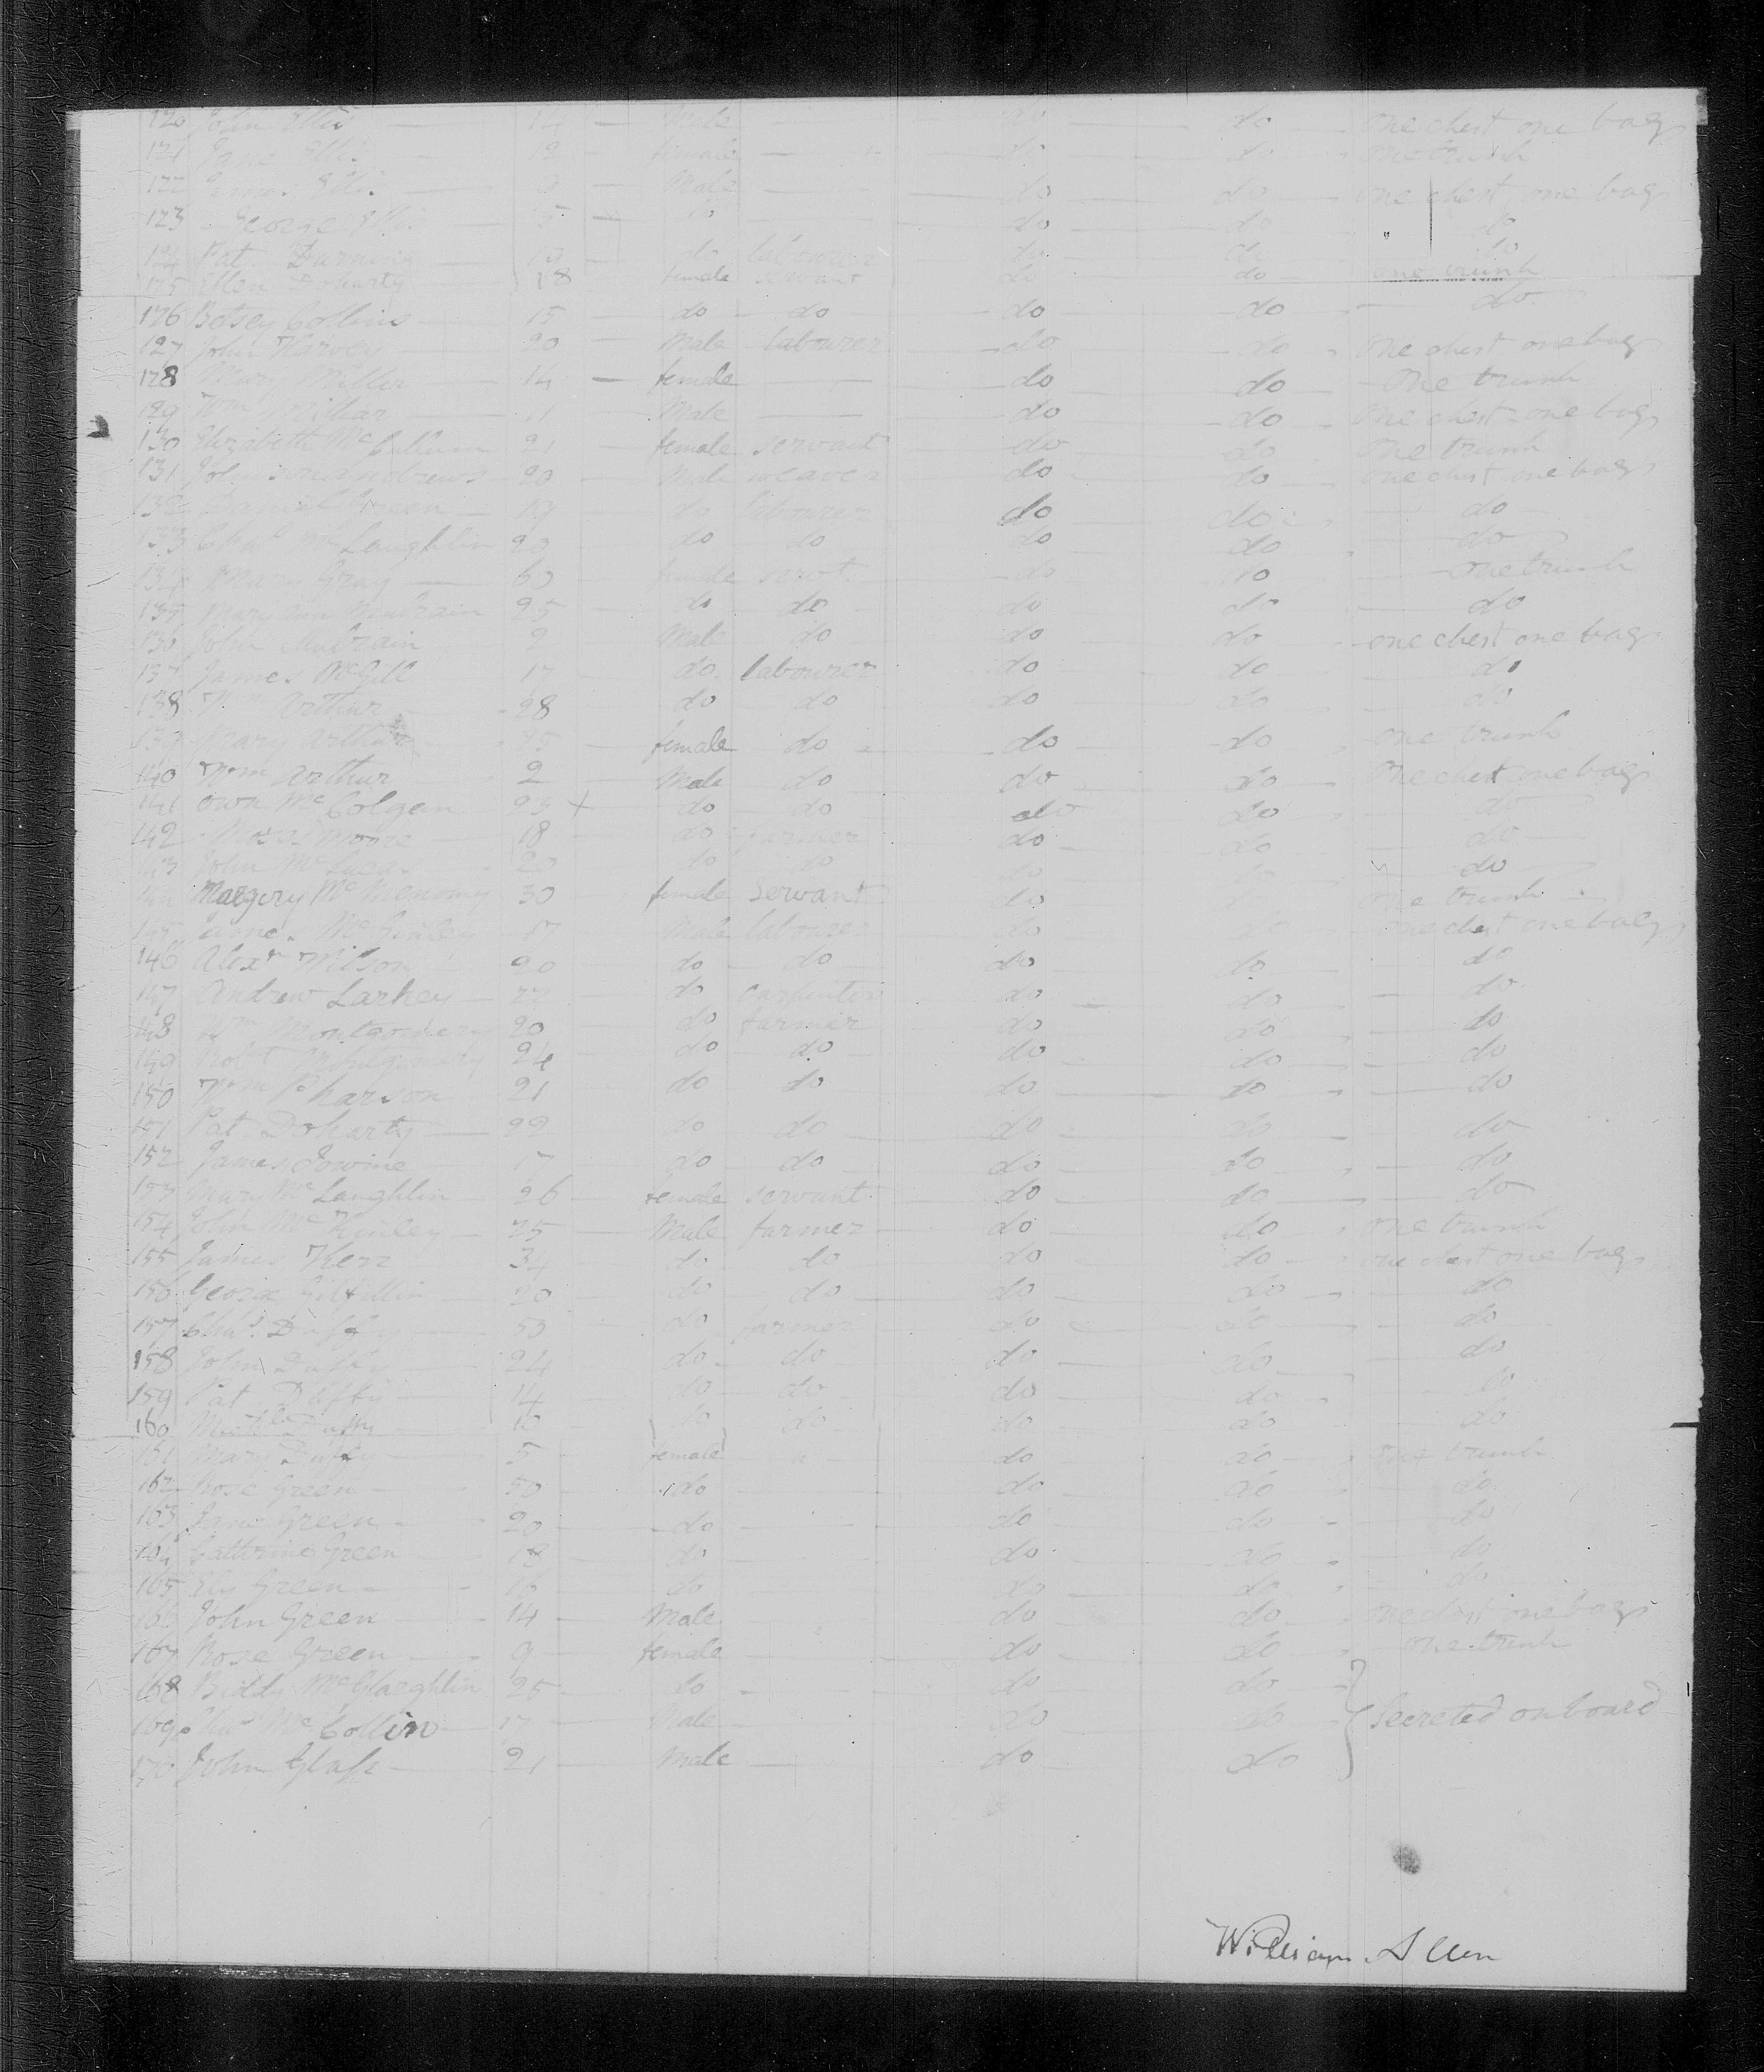 120 John Ellis 14 Male do do one chest one bag
121 Jane Ellis 12 female do do one trunk
122 James Ellis 9 Male do do one chest one bag
123 George Ellis 5 do do do do
124 Pat do labourer do do do
125 Ellen Doharty 18 female servant do do one trunk
126 Betsey Collins 15 do do do do do
127 John Harvey 20 Male labourer do do one chest one bag
128 Mary Millar 14 female do do One trunk
129 Wm Millar 1 Male do do one chest one bag
130 Elizabeth McCallum 21 female servant do do One trunk
131 Andrews 20 Male weaver do do one chest one bag
132 Daniel Green 19 do labourer do do do
133 Chas McLaughlin 20 do do do do do
134 Mary Gray 60 female servt do do one trunk
135 Mary Ann 25 do do do do do
136 John 2 Male do do do one chest one bag
137 James McGill 17 do labourer do do do
138 Wm Arthur 28 do do do do do
139 Mary Arthur 25 female do do do one trunk
140 Wm Arthur 2 Male do do do One chest one bag
141 Own McColgan 23 + do do do do do
142 Moore 18 do farmer do do do
143 John 20 do do do do do
144 Margery McMenomy 30 female servant do do one trunk
145 James McGinley 17 Male labourer do do one chest one bag
146 Alexr Wilson 20 do do do do do
147 Andrew Larkey 22 do carpenter do do do
148 Wm Montgomery 20 do farmer do do do
149 Robt Montgomery 24 do do do do do
150 Wm Pharson 21 do do do do do
151 Pat Doharty 22 do do do do do
152 James 17 do do do do do
153 Mary McLaughlin 26 female servant do do do
154 John McKinley 25 Male farmer do do one trunk
155 James Kerr 34 do do do do one chest one bag
156 George Gilfillin 20 do do do do do
157 Chas Duffy 50 do farmer do do do
158 John Duffy 24 do do do do do
159 Pat Duffy 14 do do do do do
160 Duffy 10 do do do do do
161 Mary Duffy 5 female " do do one trunk
162 Rose Green 50 do do do do
163 Jane Green 20 do do do do
164 Catherine Green 18 do do do do
165 Green 16 do do do do
166 John Green 14 Male do do one chest one bag
167 Rose Green 9 female do do one trunk
168 Biddy McGlaughlin 25 do do do
169 Chas McCollin 17 Male do do Secreted on board
170 John Glass 21 Male do do
William Allen